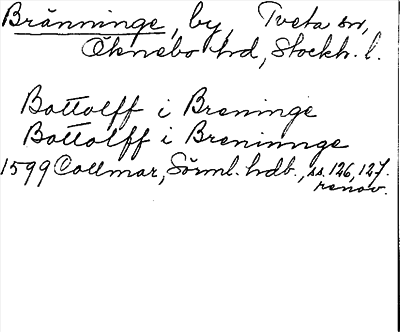 Bränninge, by, Tveta sn,
Öknebo hd, Stockh. l.
Bottolff i Breninge
Bottolff i Breninnge
1599 Collmar, Sörml. hdb., ss. 126, 127.
renov.